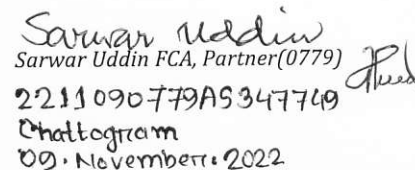 Sarwar Uddin
Sarwar Uddin FCA, Partner(0779)
2211090779AS347749
Chattogram
09. November. 2022